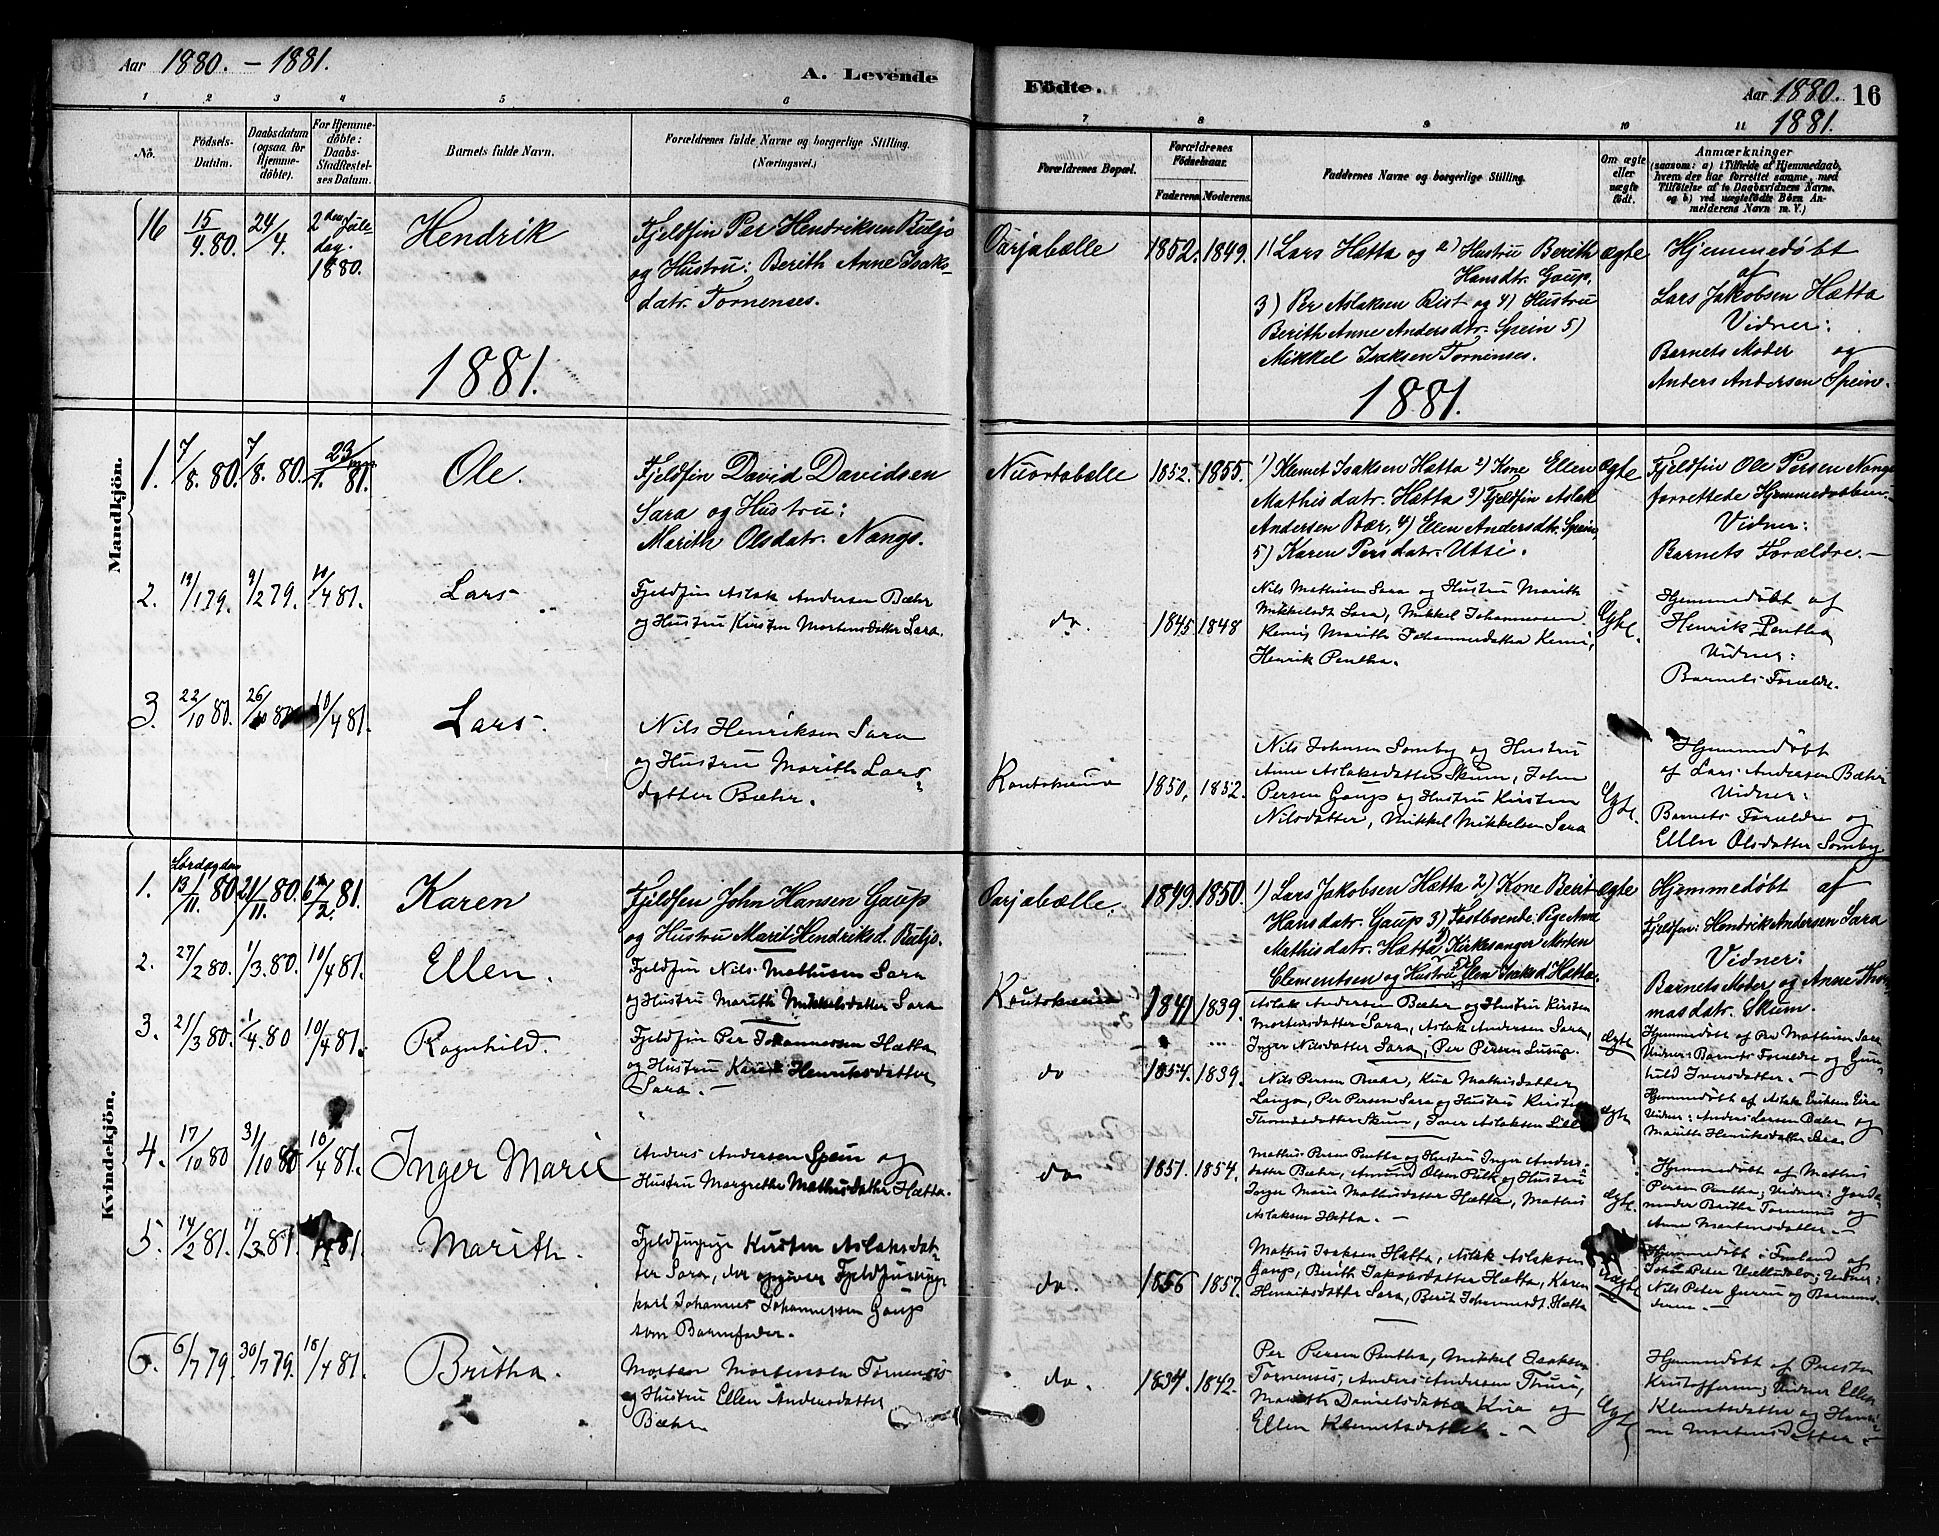 Aar 1880. – 1881.
A. Levende
Födte.
Aar 1880. 16
1881.
1 2 3 4 5 6 7 8 9 10 11
No.
Födsels-
Datum.
Daabsdatum
(ogsaa for
Hjemme-
döbte).
For Hjemme-
döbte:
Daabs-
Stadfæstel-
ses Datum.
Barnets fulde Navn.
Forældrenes fulde Navne og borgerlige Stilling.
(Næringsvei.)
Forældrenes Bopæl.
Forældrenes
Födselsaar.
Faderens. Moderens.
Faddernes Navne og borgerlige Stilling.
Om ægte
eller
uægte
födt.
Anmærkninger
(saasom: a) i Tilfælde af Hjemmedaab,
hvem der har forrettet samme, med
Tilföielse af to Daabsvidners Navne.
og b) ved uægtefödte Börn An-
melderens Navn m. V.)
16 15/4.80. 24/4. 2den Jule-
dag.
1880.
Hendrik
Fjeldfin Per Hendriksen Buljo
og Hustru: Berith Anne Isaks-
datr. Tornenses.
Oarjabælle 1852. 1849.
1) Lars Hætta og 2) Hustru Berith
Hansdtr. Gaup,
3) Per Aslaksen Bist og 4) Hustru
Berith Anne Andersdtr. Spein 5)
Mikkel Isaksen Tornenses.
ægte
Hjemmedøbt
af
Lars Jakobsen Hætta
Vidner:
Barnets Moder og
Anders Andersen Spein.
1881.
1881.
Mandkjön.
1. 7/8.80. 7/8.80. 23/1.81.
Ole.
Fjeldfin David Davidsen
Sara og Hustru:
Marith Olsdatr. Nangs.
Nuortabælle 1852. 1855.
1) Klemet Isaksen Hætta 2) Kone Ellen
Mathisdatr. Hætta 3) Fjeldfin Aslak
Andersen Bær, 4) Ellen Andersdtr. Spein
5) Karen Persdatr. Utsi.
ægte
Fjeldfin Ole Persen Nangs
forrettede Hjemmedaaben
Vidner:
Barnets Forældre. –
2. 19/1 79. 9/2 79. 10/4 81.
Lars
Fjeldfin Aslak Andersen Bæhr
og Hustru Kirsten Mortensdatter Sara.
do. 1845 1848
Nils Mathisen Sara og Hustru Marith
Mikkelsdt Sara, Mikkel Johannesen
Kemi, Marith Johannesdatter Kemi,
Henrik Pentha.
Egte.
Hjemmedøbt af
Henrik Pentha
Vidner:
Barnets Forældre.
3. 22/10 80. 26/10 80. 10/4 81.
Lars
Nils Henriksen Sara
og Hustru Marith Lars
datter Bæhr.
Koutokeino 1850, 1852.
Nils Johnsen Somby og Hustru
Anne Aslaksdatter Skum, John
Persen Gaup og Hustru Kirsten
Nilsdatter, Mikkel Mikkelsen Sara
Egte.
Hjemmedøbt
af Lars Andersen Bæhr
Vidner:
Barnets Forældre og
Ellen Olsdatter Somby
Kvindekjön.
1. Lørdag den
13/11 80. 21/11 80. 6/2.81.
Karen
Fjeldfin John Hansen Gaup
og Hustru Marit Hendriksd. Buljo.
Oarjabælle. 1849. 1850.
1) Lars Jakobsen Hætta 2) Kone Berit
Hansdatr. Gaup 3) Fastboende Pige Anne
Mathisdatr. Hætta 4) Kirkesanger Morten
Clementsen og Hustru 5) Elen Isaksd. Hætta.
ægte
Hjemmedøbt af
Fjeldfin: Hendrik Andersen Sara
Vidner:
Barnets Moder og Anne Tho-
masdatr. Skum.
2. 27/2 80. 1/3.80. 10/4 81.
Ellen.
Fjeldfin Nils Mathisen Sara
og Hustru Marith Mikkelsdatter Sara
Koutokeino 1841 1839.
Aslak Andersen Bæhr og Hustru Kirsten
Mortensdatter Sara, Aslak Andersen Sara,
Inger Nilsdatter Sara, Per Persen
ægte
Hjemmedøbt af Per Mathisen Sara
Vidner: Barnets Forældre og Gun-
hild Iversdatter. –
3. 21/3 80. 1/4.80 10/4 81.
Ragnhild.
Fjeldfin Per Johannessen Hætta
og Hustru Karen Henriksdatter
Sara. –
do 1854. 1839.
Nils Persen, Mathisdatter
Per Persen Sara og Hustru Kirsten
Thomasdatter Skum, Iver Aslaksen
ægte
Hjemmedøbt af Aslak Eriksen Eira
Vidner: Anders Larsen Bæhr og
Marith Henriksdatter Sara
4. 17/10 80 31/10 80 10/4 81.
Inger Marie
Anders Andersen Spein og
Hustru Margrethe Mathisdatter Hætta.
do 1851. 1854.
Mathis Persen Pentha og Hustru Inger Anders-
datter Bæhr, Amund Olsen Pulk og Hustru
Inger Marie Mathisdatter Hætta, Mathis
Aslaksen Hætta. –
ægte.
Hjemmedøbt af Mathis
Persen Pentha, Vidner: Jorde-
moder Britha Tornensis og
Anne Mortensdatter. –
5. 14/2 81. 1/3.81. 81
Marith.
Fjeldfinpige Kirsten Aslaksdat-
ter Sara, der opgiver Fjeldfinunge
karl Johannes Johannessen Gaup
som Barnefader.
do. 1856 1857.
Mathis Isaksen Hætta, Aslak Aslaksen
Gaup, Berith Jakobsdatter Hætta, Karen
Henriksdatter Sara, Berit Johannesdt. Hætta
Uægte
Hjemmedøbt i Finland af
Johan Peter, Vidner:
Nils Peter og Barnemo-
deren. –
6. 6/7 79. 30/7 79. 18/4 81.
Britha.
Morten Mortensen Tornensis
og Hustru Ellen Andersdatter
Bæhr
do. 1834. 1842.
Per Persen Pentha, Mikkel Isaksen
Tornensis, Anders Andersen Thuri,
Marith Danielsdatter Kria og
Ellen Klemetsdatter. –
Egte
Hjemmedøbt af Presten
Kristoffersen, Vidner Ellen
Klemetsdatter og
Mortensdatter. –